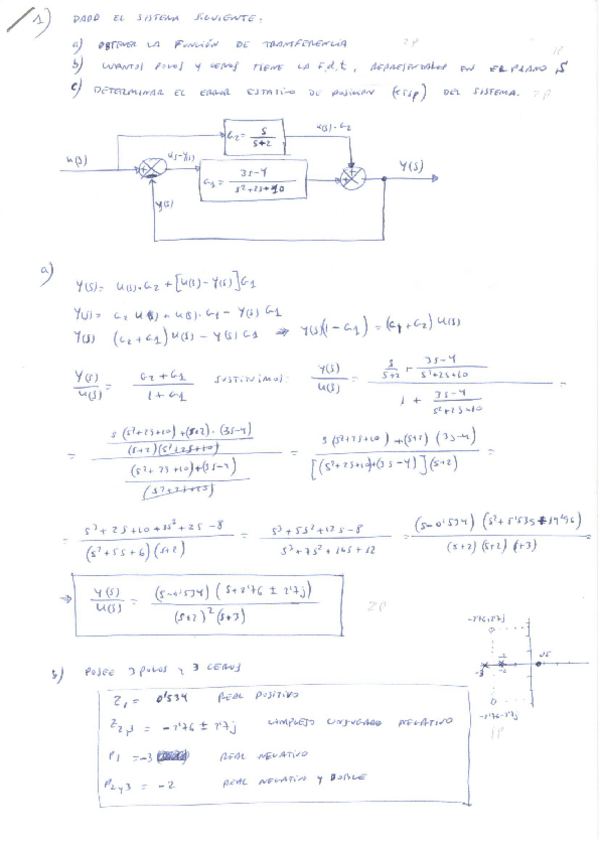 1) DADO EL SISTEMA SIGUIENTE:
a) OBTENER LA FUNCIÓN DE TRANSFERENCIA 2P
b) CUANTOS POLOS Y CEROS TIENE LA F.d.t, REPRESENTARLO EN EL PLANO S 1P
c) DETERMINAR EL ERROR ESTATICO DE POSICION (essp) DEL SISTEMA. 2P
G2 = s/(s+2)
U(s)·G2
U(s)
U(s)-Y(s)
G1 = (3s-4)/(s²+2s+10)
Y(s)
Y(s)
a)
Y(s)= U(s)·G2 + [U(s)-Y(s)]G1
Y(s)= G2 U(s) + U(s)·G1 - Y(s) G1
Y(s) (G2+G1) U(s) - Y(s) G1 ⇒ Y(s)(1-G1) = (G1+G2) U(s)
Y(s)/U(s) = (G2+G1)/(1+G1) SUSTITUIMOS: Y(s)/U(s) = (s/(s+2) + (3s-4)/(s²+2s+10))/(1 + (3s-4)/(s²+2s+10)) =
= ((s(s²+2s+10)+(s+2)·(3s-4))/((s+2)(s²+2s+10)))/(((s²+2s+10)+(3s-4))/(s²+2s+10)) = (s(s²+2s+10)+(s+2)(3s-4))/([(s²+2s+10)+(3s-4)](s+2)) =
= (s³+2s+10+3s²+2s-8)/((s²+5s+6)(s+2)) = (s³+5s²+12s-8)/(s³+7s²+16s+12) = ((s-0'534)(s²+5'53s+14'96))/((s+2)(s+2)(s+3)) =
→ Y(s)/U(s) = ((s-0'534)(s+2'76±2'7j))/((s+2)²(s+3)) 2P
b) POSEE 3 POLOS Y 3 CEROS
Z1 = 0'534 REAL POSITIVO
Z2,3 = -2'76 ± 2'7j COMPLEJO CONJUGADO NEGATIVO
P1 = -3 REAL NEGATIVO
P2y3 = -2 REAL NEGATIVO Y DOBLE
-2'76+2'7j
-3
-2
-2'76-2'7j
1P